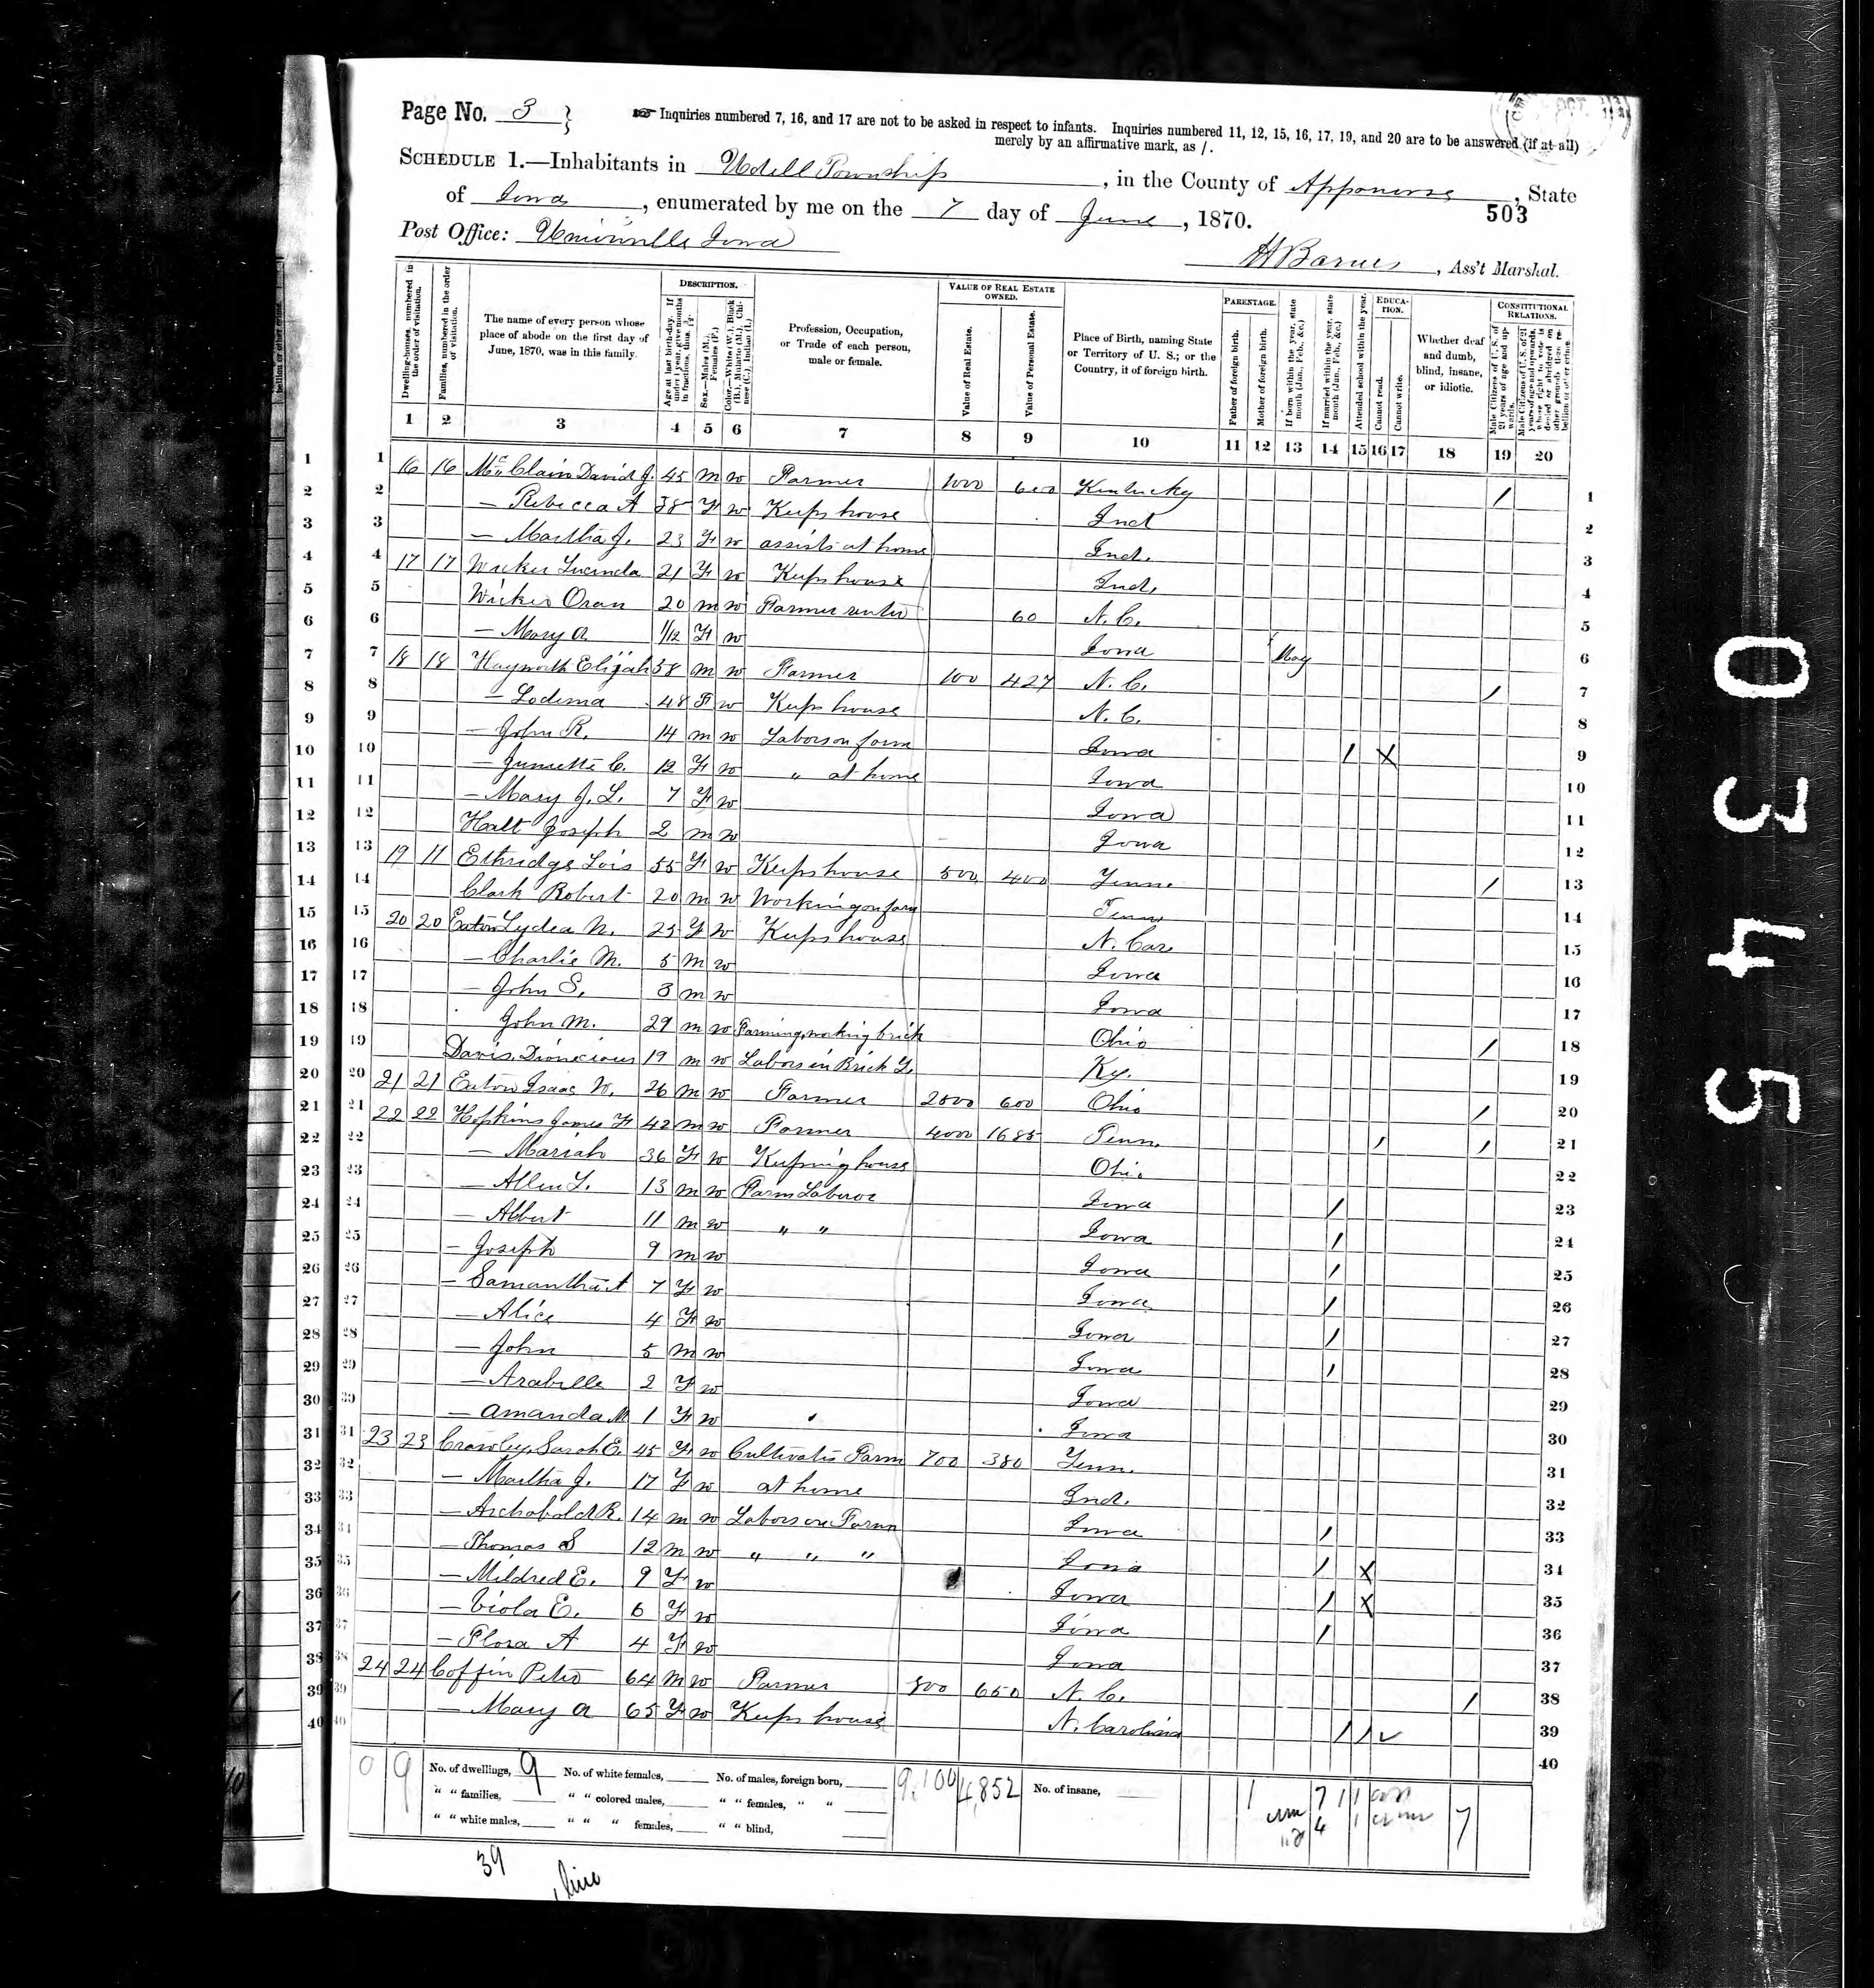 Page No. 3
☞ Inquiries numbered 7, 16, and 17 are not to be asked in respect to infants. Inquiries numbered 11, 12, 15, 16, 17, 19, and 20 are to be answered (if at all)
merely by an affirmative mark, as /.
SCHEDULE 1.—Inhabitants in Udell Township, in the County of Apponoose, State
of Iowa, enumerated by me on the 7 day of June, 1870.
503
Post Office: Unionville Iowa
H Barnes, Ass't Marshal.
Dwelling-houses, numbered in the order of visitation.
Families, numbered in the order of visitation.
The name of every person whose place of abode on the first day of June, 1870, was in this family.
DESCRIPTION.
Age at last birth-day. If under 1 year, give months in fractions, thus, 3/12.
Sex.—Males (M.), Females (F.)
Color.—White (W.), Black (B.), Mulatto (M.), Chinese (C.), Indian (I.)
Profession, Occupation, or Trade of each person, male or female.
VALUE OF REAL ESTATE OWNED.
Value of Real Estate.
Value of Personal Estate.
Place of Birth, naming State or Territory of U. S.; or the Country, if of foreign birth.
PARENTAGE.
Father of foreign birth.
Mother of foreign birth.
If born within the year, state month (Jan., Feb., &c.)
If married within the year, state month (Jan., Feb., &c.)
Attended school within the year.
EDUCATION.
Cannot read.
Cannot write.
Whether deaf and dumb, blind, insane, or idiotic.
CONSTITUTIONAL RELATIONS.
Male Citizens of U. S. of 21 years of age and upwards.
Male Citizens of U. S. of 21 years of age and upwards, whose right to vote is denied or abridged on other grounds than rebellion or other crime.
1 2 3 4 5 6 7 8 9 10 11 12 13 14 15 16 17 18 19 20
1 1 16 16 McClain David J. 45 m w Farmer 1000 600 Kentucky / 1
2 2 — Rebecca A 38 F w Keeps house Ind 2
3 3 — Martha J. 23 F w assists at home Ind. 3
4 4 17 17 Wicker Lucinda 21 F w Keeps house Ind. 4
5 5 Wicker Oran 20 m w Farmer renter 60 N. C. 5
6 6 — Mary A 1/12 F w Iowa May 6
7 7 18 18 Hayworth Elijah 58 m w Farmer 100 427 N. C. / 7
8 8 — Lodema 48 F w Keeps house N. C. 8
9 9 — John R. 14 m w Labors on farm Iowa / X 9
10 10 — C. 12 F w " at home Iowa 10
11 11 — Mary J. L. 7 F w Iowa 11
12 12 Halt Joseph 2 m w Iowa 12
13 13 19 11 Ethridge Lois 55 F w Keeps house 500 400 Tenne / 13
14 14 Clark Robert 20 m w Working on farm Tenne 14
15 15 20 20 Eaton Lydea N. 25 F w Keeps house N. Car. 15
16 16 — Charlie M. 5 m w Iowa 16
17 17 — John S. 3 m w Iowa 17
18 18 John M. 29 m w Farming, making brick Ohio / 18
19 19 Davis Dionecious 19 m w Labors in Brick Y. Ky. 19
20 20 21 21 Eaton Isaac N. 26 m w Farmer 2000 600 Ohio / 20
21 21 22 22 Hopkins James H 42 m w Farmer 4000 1685 Tenn. / / 21
22 22 — Mariah 36 F w Keeping house Ohio 22
23 23 — Allen L. 13 m w Farm Laborer Iowa / 23
24 24 — Albert 11 m w " " Iowa / 24
25 25 — Joseph 9 m w Iowa / 25
26 26 — Samantha A 7 F w Iowa / 26
27 27 — Alice 4 F w Iowa / 27
28 28 — John 5 m w Iowa / 28
29 29 — Arabelle 2 F w Iowa 29
30 30 — Amanda M 1 F w Iowa 30
31 31 23 23 Crawley Sarah E. 45 F w Cultivates Farm 700 380 Tenn. 31
32 32 — Martha J. 17 F w at home Ind. 32
33 33 — Archabold R. 14 m w Labors on Farm Iowa / 33
34 34 — Thomas S 12 m w " " " Iowa / X 34
35 35 — Mildred E. 9 F w Iowa / X 35
36 36 — Viola E. 6 F w Iowa / 36
37 37 — Flora A 4 F w Iowa 37
38 38 24 24 Coffin Peter 64 m w Farmer 800 650 N. C. / 38
39 39 — Mary A 65 F w Keeps house N. Carolina / / ✓ 39
40 40 40
0 9 No. of dwellings, 9 No. of white females, No. of males, foreign born, 9,100 4,852 No. of insane, 1 7 1 1
" " families, " " colored males, " " females, " " 4 1 7
" " white males, " " " females, " " blind,
39
0345